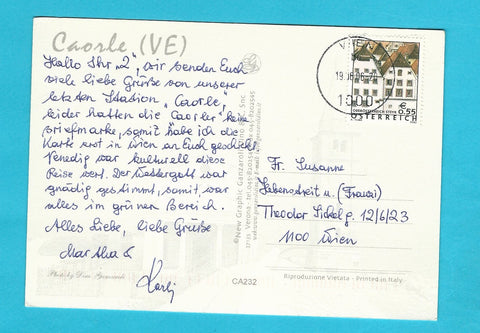 Caorle (VE)
Hallo Ihr "2", wir senden Euch
viele liebe Grüße von unserer
letzten Station "Caorle",
leider hatten die Caorler keine
Briefmarke, somit habe ich die
Karte erst in Wien an Euch geschickt
Venedig war kulturell diese
Reise wert. Der Wettergott war
gnädig gestimmt, somit war
alles im grünen Bereich.
Alles Liebe, liebe Grüße
Martha &
Karli
©New Graphic Ganzaroli
37135 Verona
WIEN
19.06.06
1000
€
0.55
OBERÖSTERREICH STEYR
ÖSTERREICH
Fr. Susanne
u. (Franzi)
Theodor 12/6/23
1100 Wien
Photo by
CA232
Riproduzione Vietata - Printed in Italy